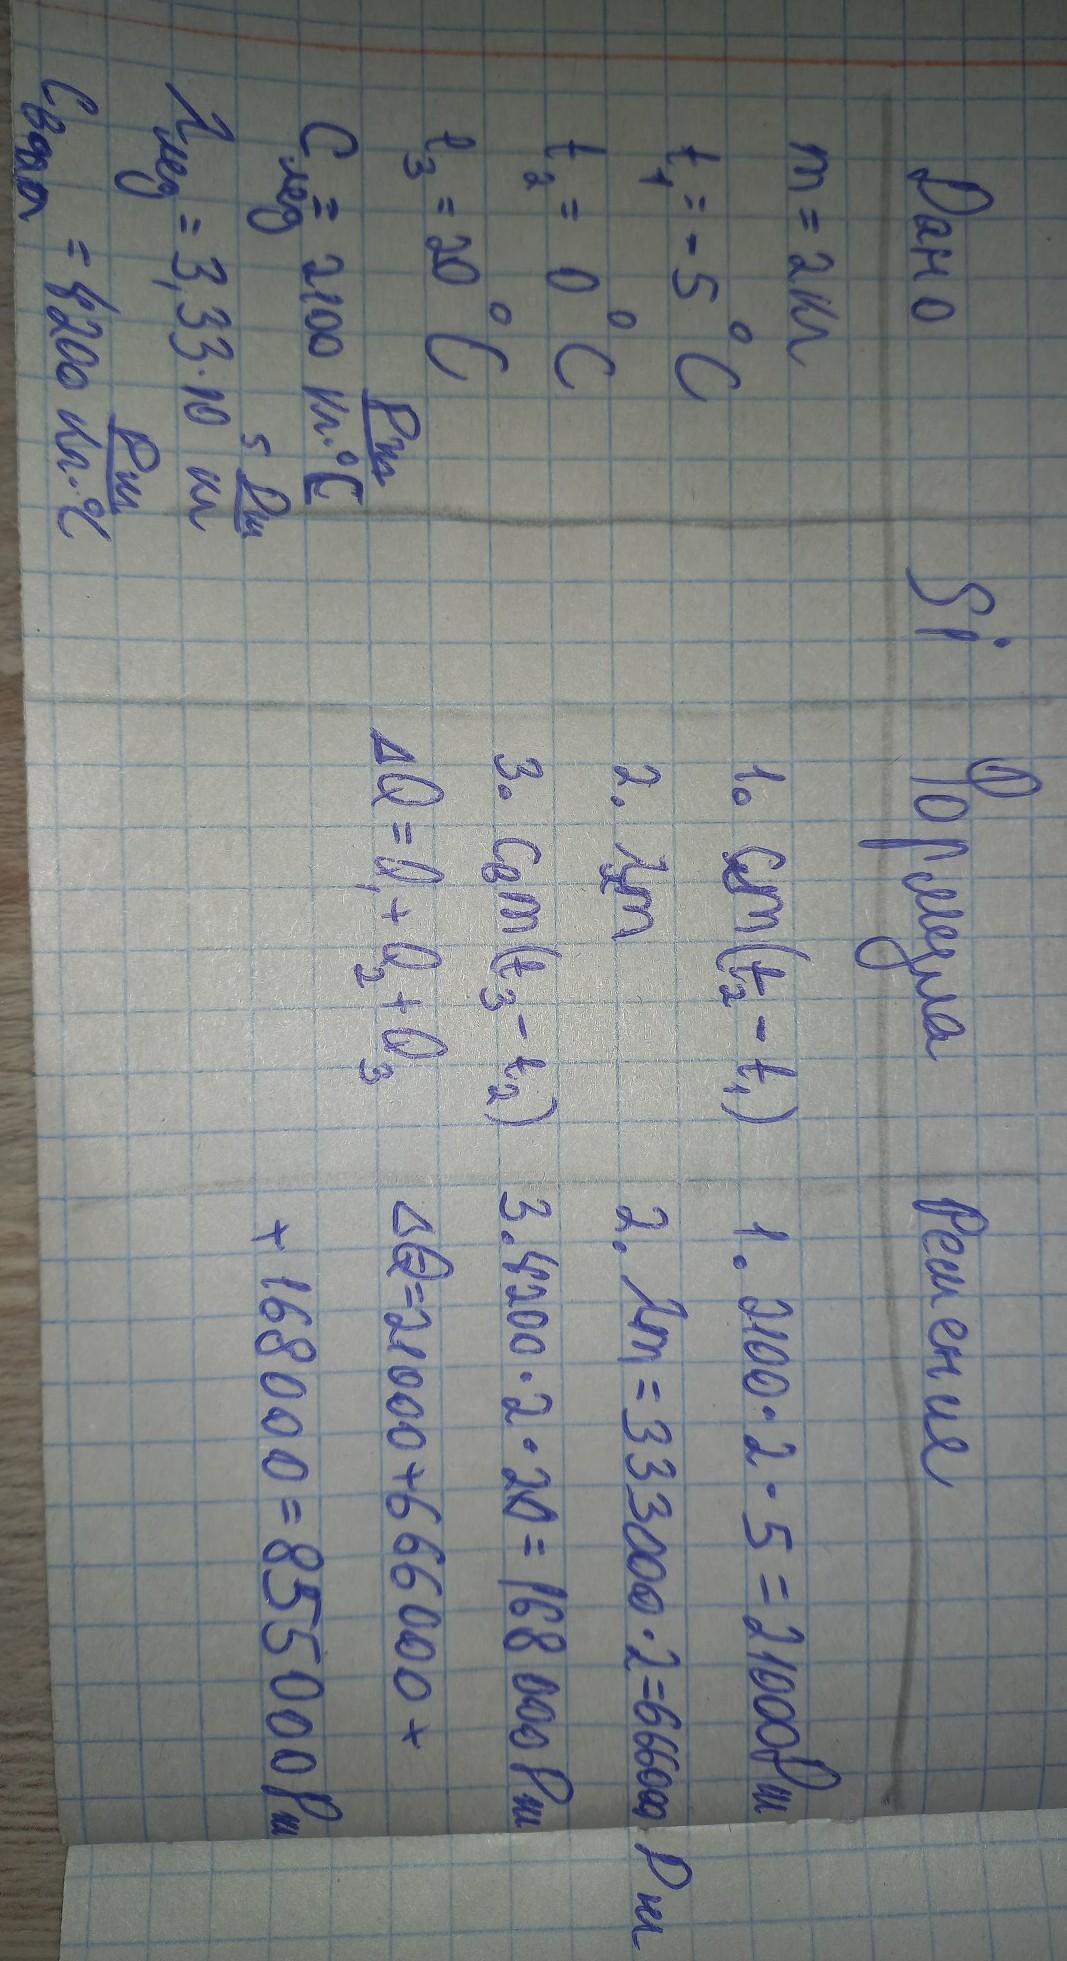 Дано Si Формула Решение
m = 2 кг
t₁ = -5 °C
t₂ = 0 °C
t₃ = 20 °C
Cлёд = 2100 Дж/кг·°C
λлед = 3,33·10⁵ Дж/кг
Cвода = 4200 Дж/кг·°C
1. Cлm(t₂ - t₁)
2. λm
3. Cвm(t₃ - t₂)
ΔQ = Q₁ + Q₂ + Q₃
1. 2100·2·5 = 21000 Дж
2. λm = 333000·2 = 666000 Дж
3. 4200·2·20 = 168 000 Дж
ΔQ = 21000 + 666000 +
+ 168000 = 855000 Дж